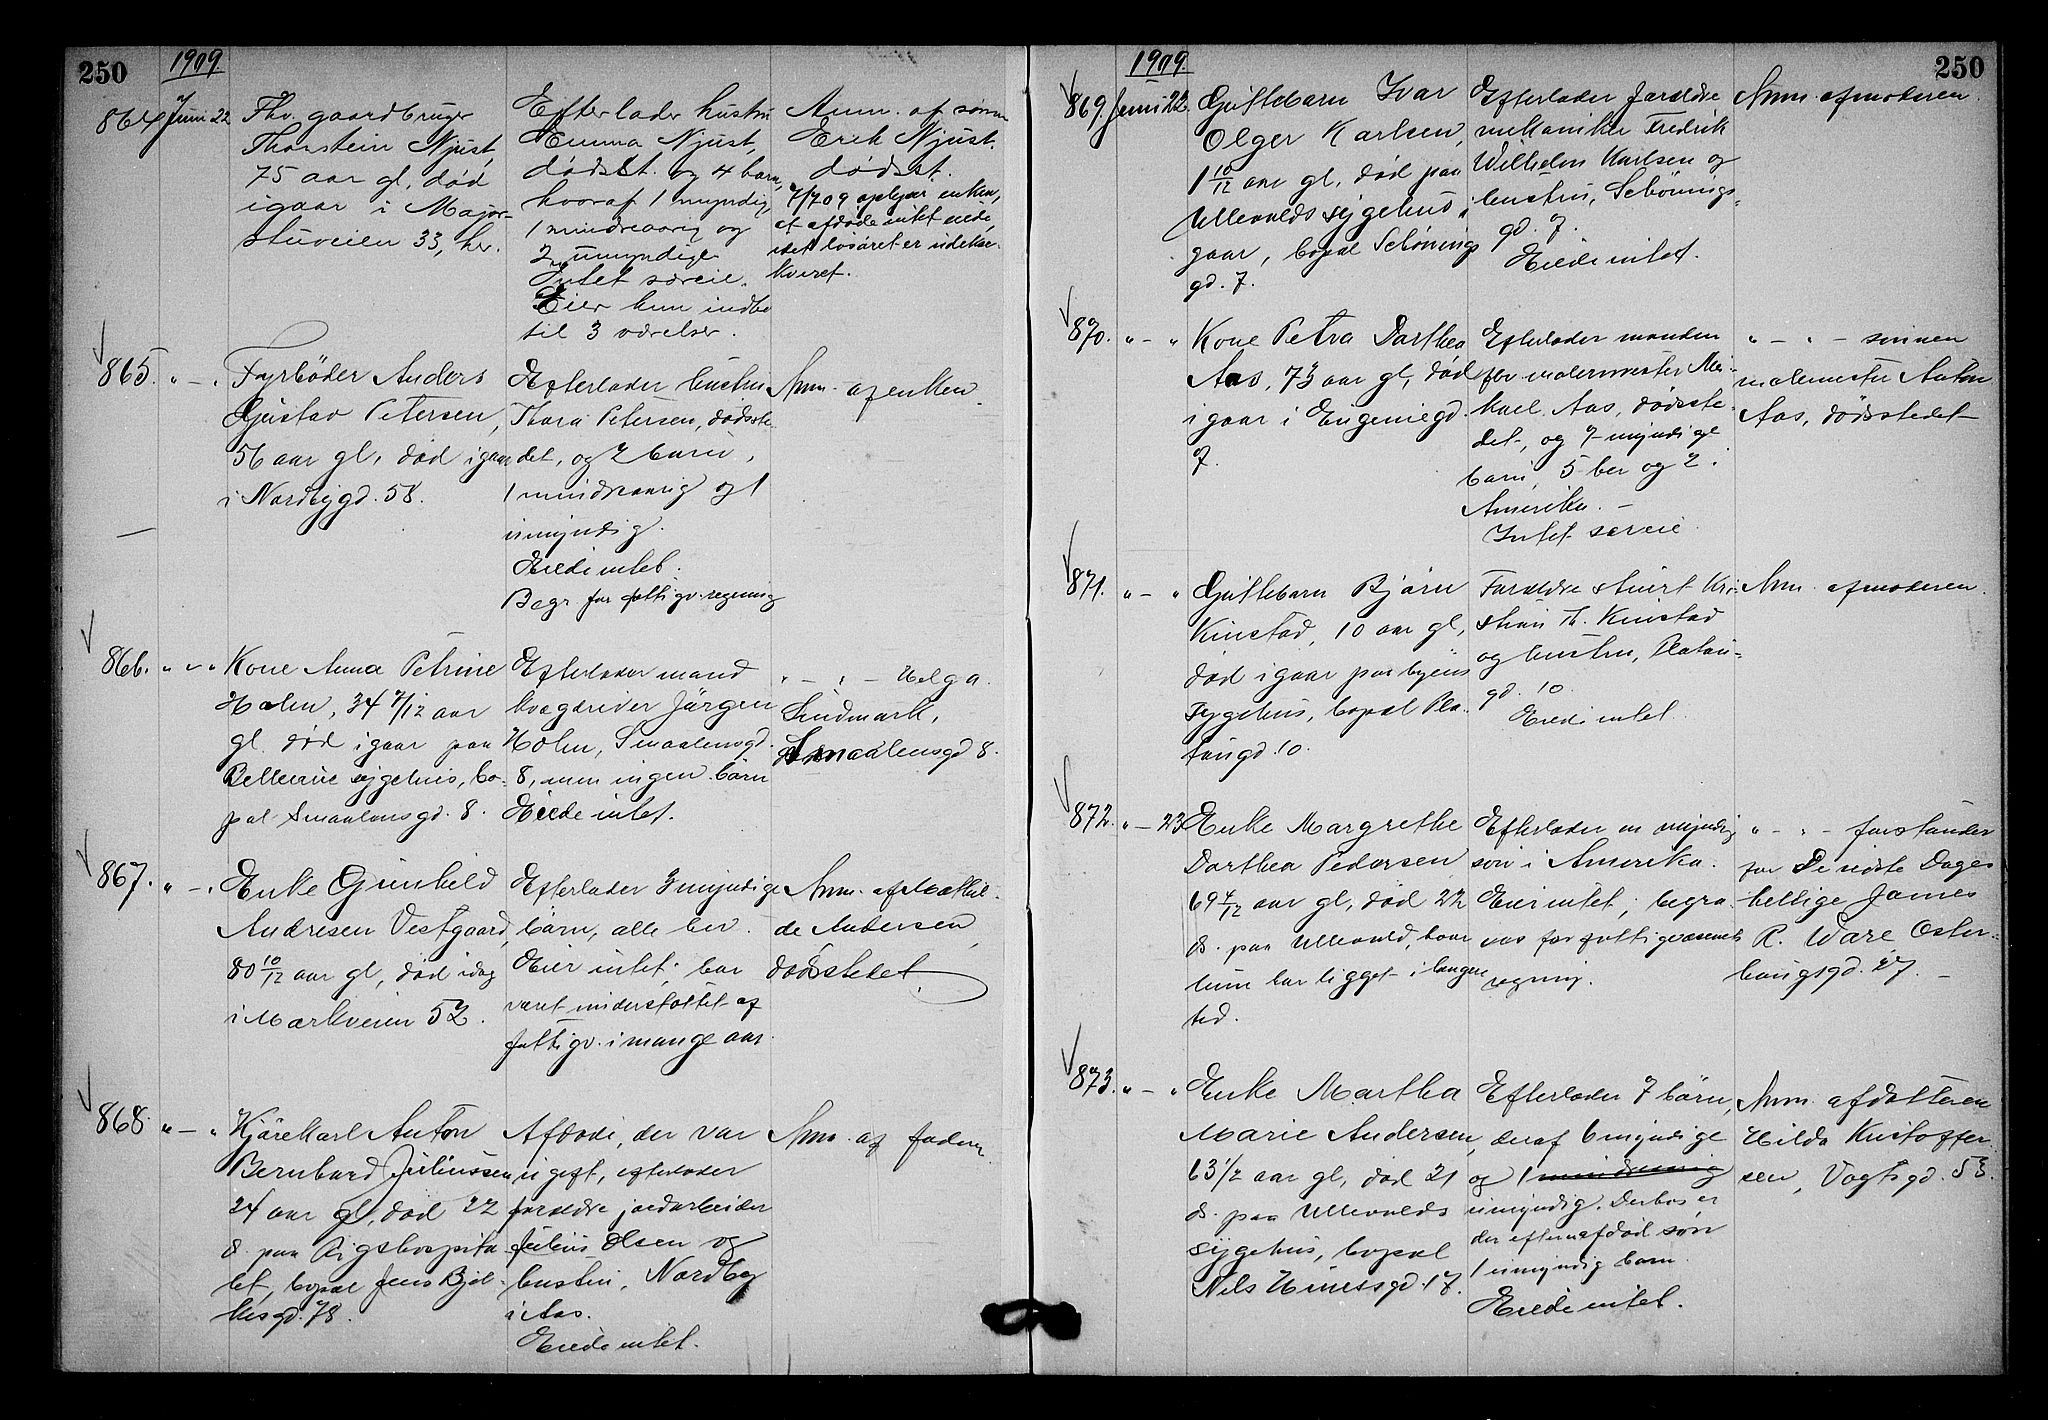 250
1909.
864
Juni 22
Fhv. gaardbruger
Thorstein Njust,
75 aar gl, død
igaar i Major-
stuveien 33, hr.
Efterlader hustru
Emma Njust,
dødsst. og 4 barn,
hvoraf 1 myndig,
1 mindreaarig og
2 umyndige
Intet særeie.
Eier kun indbo
til 3 værelser.
Anm. af sønn
Erik Njust.
dødsst.
7/7 09 oplyser enken,
at afdøde intet eiede
idet løsøret er udekse-
kveret.
865. " - "
Fyrbøder Anders
Gustav Petersen,
56 aar gl, død igaar
i Nordbygd. 58.
Efterlader hustru
Thora Petersen, dødsste-
det, og 2 børn,
1 mindreaarig og 1
umyndig.
Eiede intet.
Begr. for fattigv. regning
Anm. af enken.
866. " - "
Kone Anna Petrine
Holm, 34 7/12 aar
gl. død igaar paa
Bellevue sygehus, bo-
pæl Smaalensgd. 8.
Efterlader mand
Jørgen
Holm, Smaalensgd.
8, men ingen børn
Eiede intet.
" - " - Helga
Lindmark,
Smaalensgd 8.
867. " - "
Enke Gunhild
Andresen Vestgaard,
80 10/12 aar gl, død idag
i Markveien 52.
Efterlader 3 myndige
børn, alle her.
Eier intet; har
været understøttet af
fattigv. i mange aar.
Anm. af Mathil-
de Andersen,
dødsstedet.
868. " - "
Kjørekarl Anton
Bernhard Juliussen
24 aar gl, død 22
ds. paa Rigshospita-
let, bopæl Jens Bjel-
kesgd. 78.
Afdøde, der var
ugift, efterlader
forældre jordarbeider
Julius Olsen og
hustru, Nordby
i Aas.
Eiede intet.
Anm. af faderen
250
1909.
869. Juni 22
Guttebarn Ivar
Olger Karlsen,
1 10/12 aar gl, død paa
Ullevolds sygehus i
gaar, bopæl Schønings
gd. 7.
Efterlader forældre
mekaniker Fredrik
Wilhelm Karlsen og
hustru, Schønings-
gd. 7.
Eiede intet.
Anm. af moderen.
870. " - "
Kone Petra Dorthea
Aas, 73 aar gl, død
igaar i Eugeniegd.
7.
Efterlader manden
fhv. malermester Mi-
kael Aas, dødsste-
det, og 7 myndige
barn, 5 her og 2 i
Amerika. -
Intet særeie.
" - " - sønnen
malermester Anton
Aas, dødsstedet
871. " - "
Guttebarn Bjørn
Kinstad, 10 aar gl,
død igaar paa byens
sygehus, bopæl Pla-
tougd. 10.
Forældre Kri-
stian Th. Kinstad
og hustru, Platou-
gd. 10.
Eiede intet.
Anm. af moderen.
872. " - 23
Enke Margrethe
Dorthea Pedersen
69 4/12 aar gl, død 22
ds. paa Ullevold, hvor
hun har ligget i længere
tid.
Efterlader en myndig
søn i Amerika.
Eier intet; begra-
ves for fattigvæsenets
regning.
" - " - forstander
for De sidste Dages
hellige James
R. Ware Oster-
haugsgd. 27. -
873. " - "
Enke Martha
Marie Andersen,
63 1/2 aar gl, død 21
ds. paa Ullevolds
sygehus, bopæl
Nils Huusgd. 17.
Efterlader 7 børn,
deraf 6 myndige
og 1 mindreaarig
umyndig. Derhos er
der efter en afdød søn
1 umyndig barn.
Eiede intet.
Anm. af datteren
Hilda Kristoffer-
sen, Vogtsgd. 53.